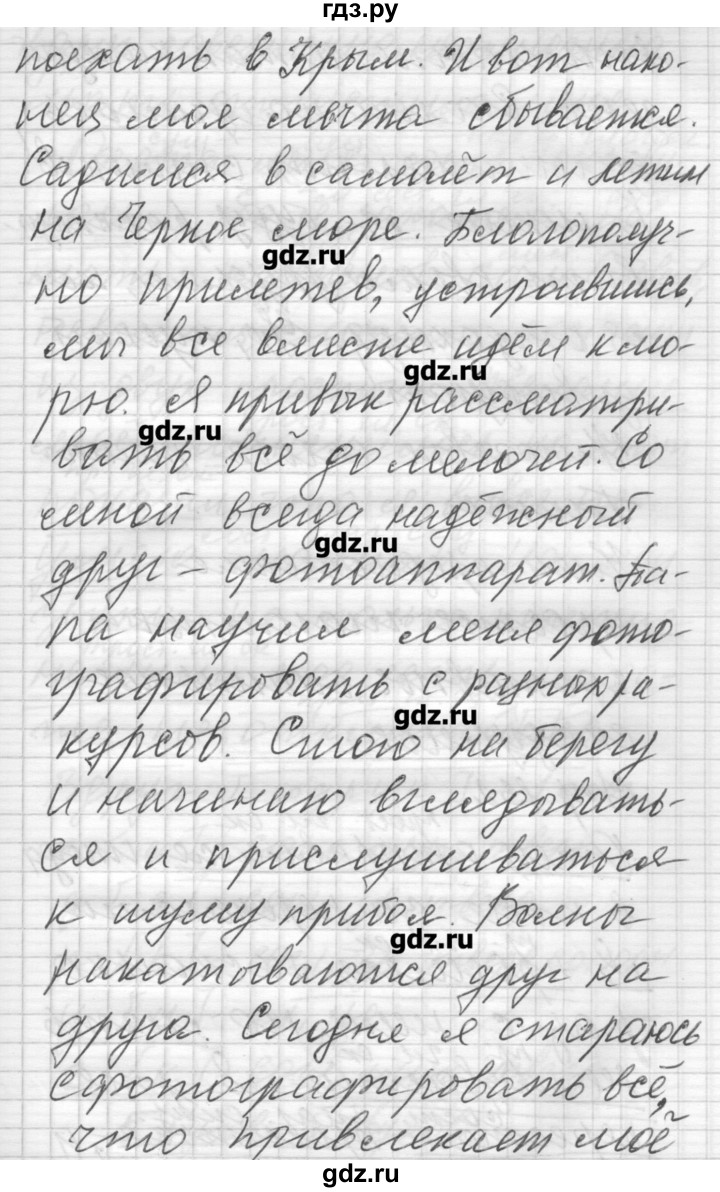 гдз.ру
поехать в Крым. И вот нако-
нец моя мечта сбывается.
Садимся в самолёт и летим
на Черное море. Благополуч-
gdz.ru
но прилетев, устроившись,
мы все вместе идём к мо-
gdz.ru
рю. Я привык рассматри-
gdz.ru
вать всё до мелочей. Со
мной всегда надёжный
gdz.ru
друг – фотоаппарат. Па-
па научил меня фото-
графировать с разных ра-
gdz.ru
курсов. Стою на берегу
и начинаю вглядывать-
ся и прислушиваться
к шуму прибоя. Волны
gdz.ru
накатываются друг на
друга. Сегодня я стараюсь
сфотографировать всё,
что привлекает моё
gdz.ru